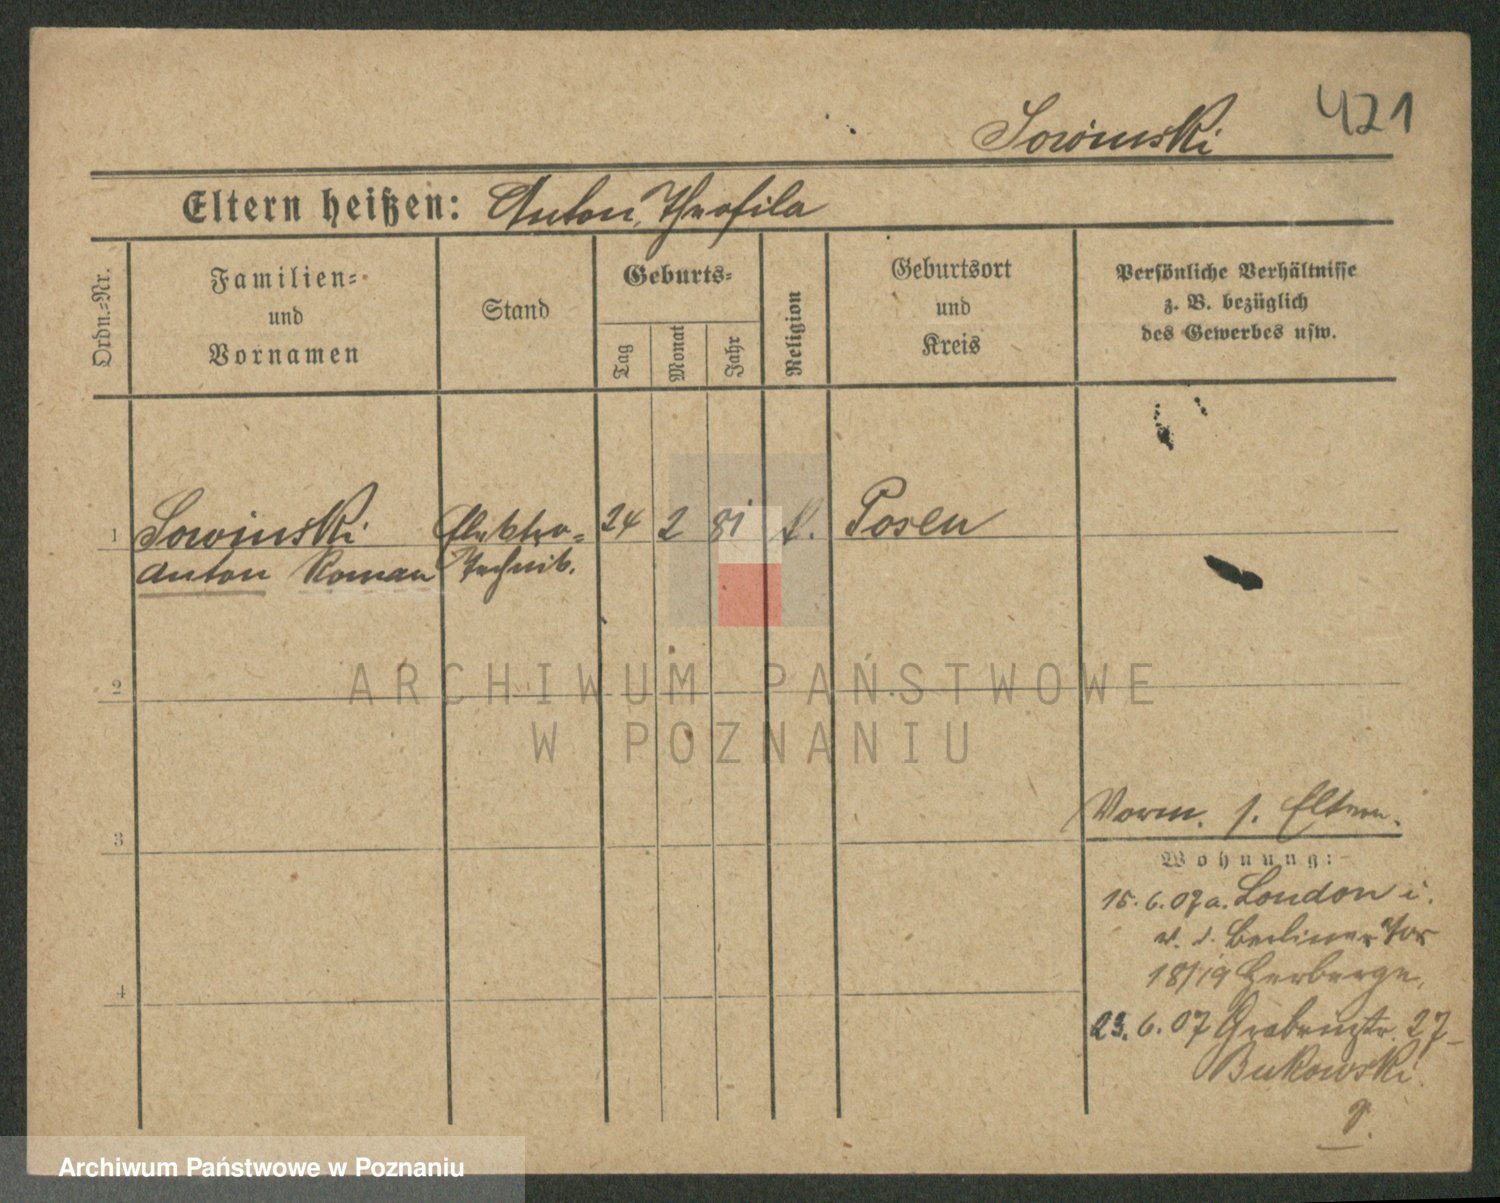 421
Sowinski
Eltern heißen: Anton, Theofila
Ordn.=Nr.
Familien=
und
Vornamen
Stand
Geburts=
Tag
Monat
Jahr
Religion
Geburtsort
und
Kreis
Persönliche Verhältnisse
z. B. bezüglich
des Gewerbes usw.
1 Sowinski Elektro= 24 2 81 k. Posen
Anton Roman Technik.
2
3
4
Vorm. s. Eltern.
Wohnung:
15. 6. 07 a. London i.
v. d. Berliner Tor
18/19 Herberge,
23. 6. 07 Grabenstr. 27
Bukowski
ARCHIWUM PAŃSTWOWE
W POZNANIU
Archiwum Państwowe w Poznaniu